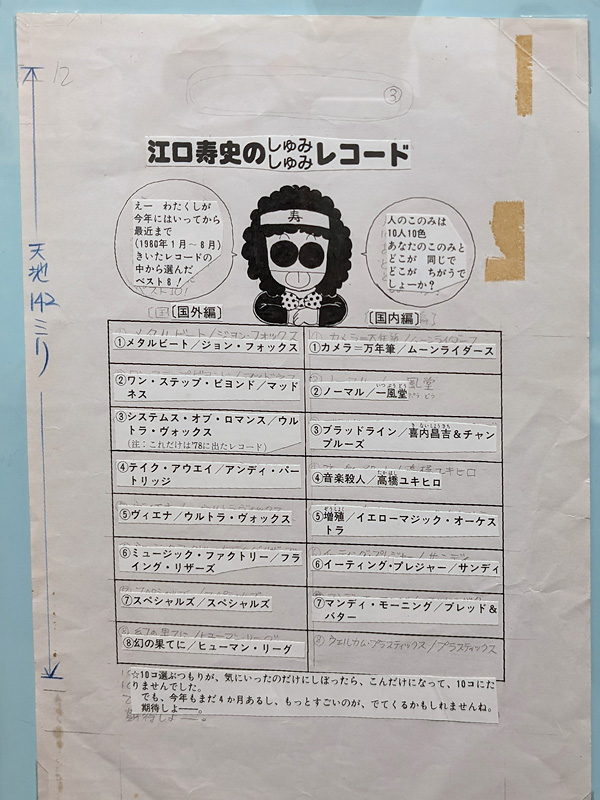 12
③
江口寿史のしゅみしゅみレコード
えー　わたくしが
今年にはいってから
最近まで
(1980年1月〜8月)
きいたレコードの
中から選んだ
ベスト8！
寿
人のこのみは
10人10色
あなたのこのみと
どこが　同じで
どこが　ちがうで
しょーか？
〔国外編〕
①メタルビート／ジョン・フォックス
②ワン・ステップ・ビヨンド／マッド
ネス
③システムス・オブ・ロマンス／ウル
トラ・ヴォックス
(注：これだけは'78に出たレコード)
④テイク・アウエイ／アンディ・パー
トリッジ
⑤ヴィエナ／ウルトラ・ヴォックス
⑥ミュージック・ファクトリー／フラ
イング・リザーズ
⑦スペシャルズ／スペシャルズ
⑧幻の果てに／ヒューマン・リーグ
〔国内編〕
①カメラ＝万年筆／ムーンライダース
②ノーマル／一風堂
③ブラッドライン／喜内昌吉＆チャン
プルーズ
④音楽殺人／高橋ユキヒロ
⑤増殖／イエローマジック・オーケス
トラ
⑥イーティング・プレジャー／サンディ
⑦マンディ・モーニング／ブレッド＆
バター
⑧ウェルカム・プラスティックス／プラスティックス
☆10コ選ぶつもりが、気にいったのだけにしぼったら、こんだけになって、10コにた
りませんでした。
でも、今年もまだ4か月あるし、もっとすごいのが、でてくるかもしれませんね。
期待しよ――。
天地142ミリ